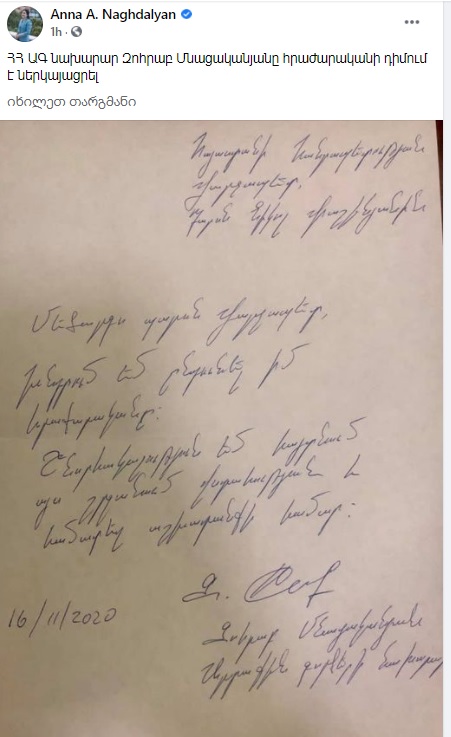 Anna A. Naghdalyan
1h ·
ՀՀ ԱԳ նախարար Զոհրաբ Մնացականյանը հրաժարականի դիմում
է ներկայացրել
იხილეთ თარგმანი
Հայաստանի Հանրապետության
վարչապետ,
պարոն Նիկոլ Փաշինյանին
Մեծարգո պարոն վարչապետ,
Խնդրում եմ ընդունել իմ
հրաժարականը:
Շնորհակալություն եմ հայտնում
այս շրջանում վստահության և
համատեղ աշխատանքի համար:
16/11/2020
Զոհրաբ Մնացականյան
Արտաքին գործերի նախարար